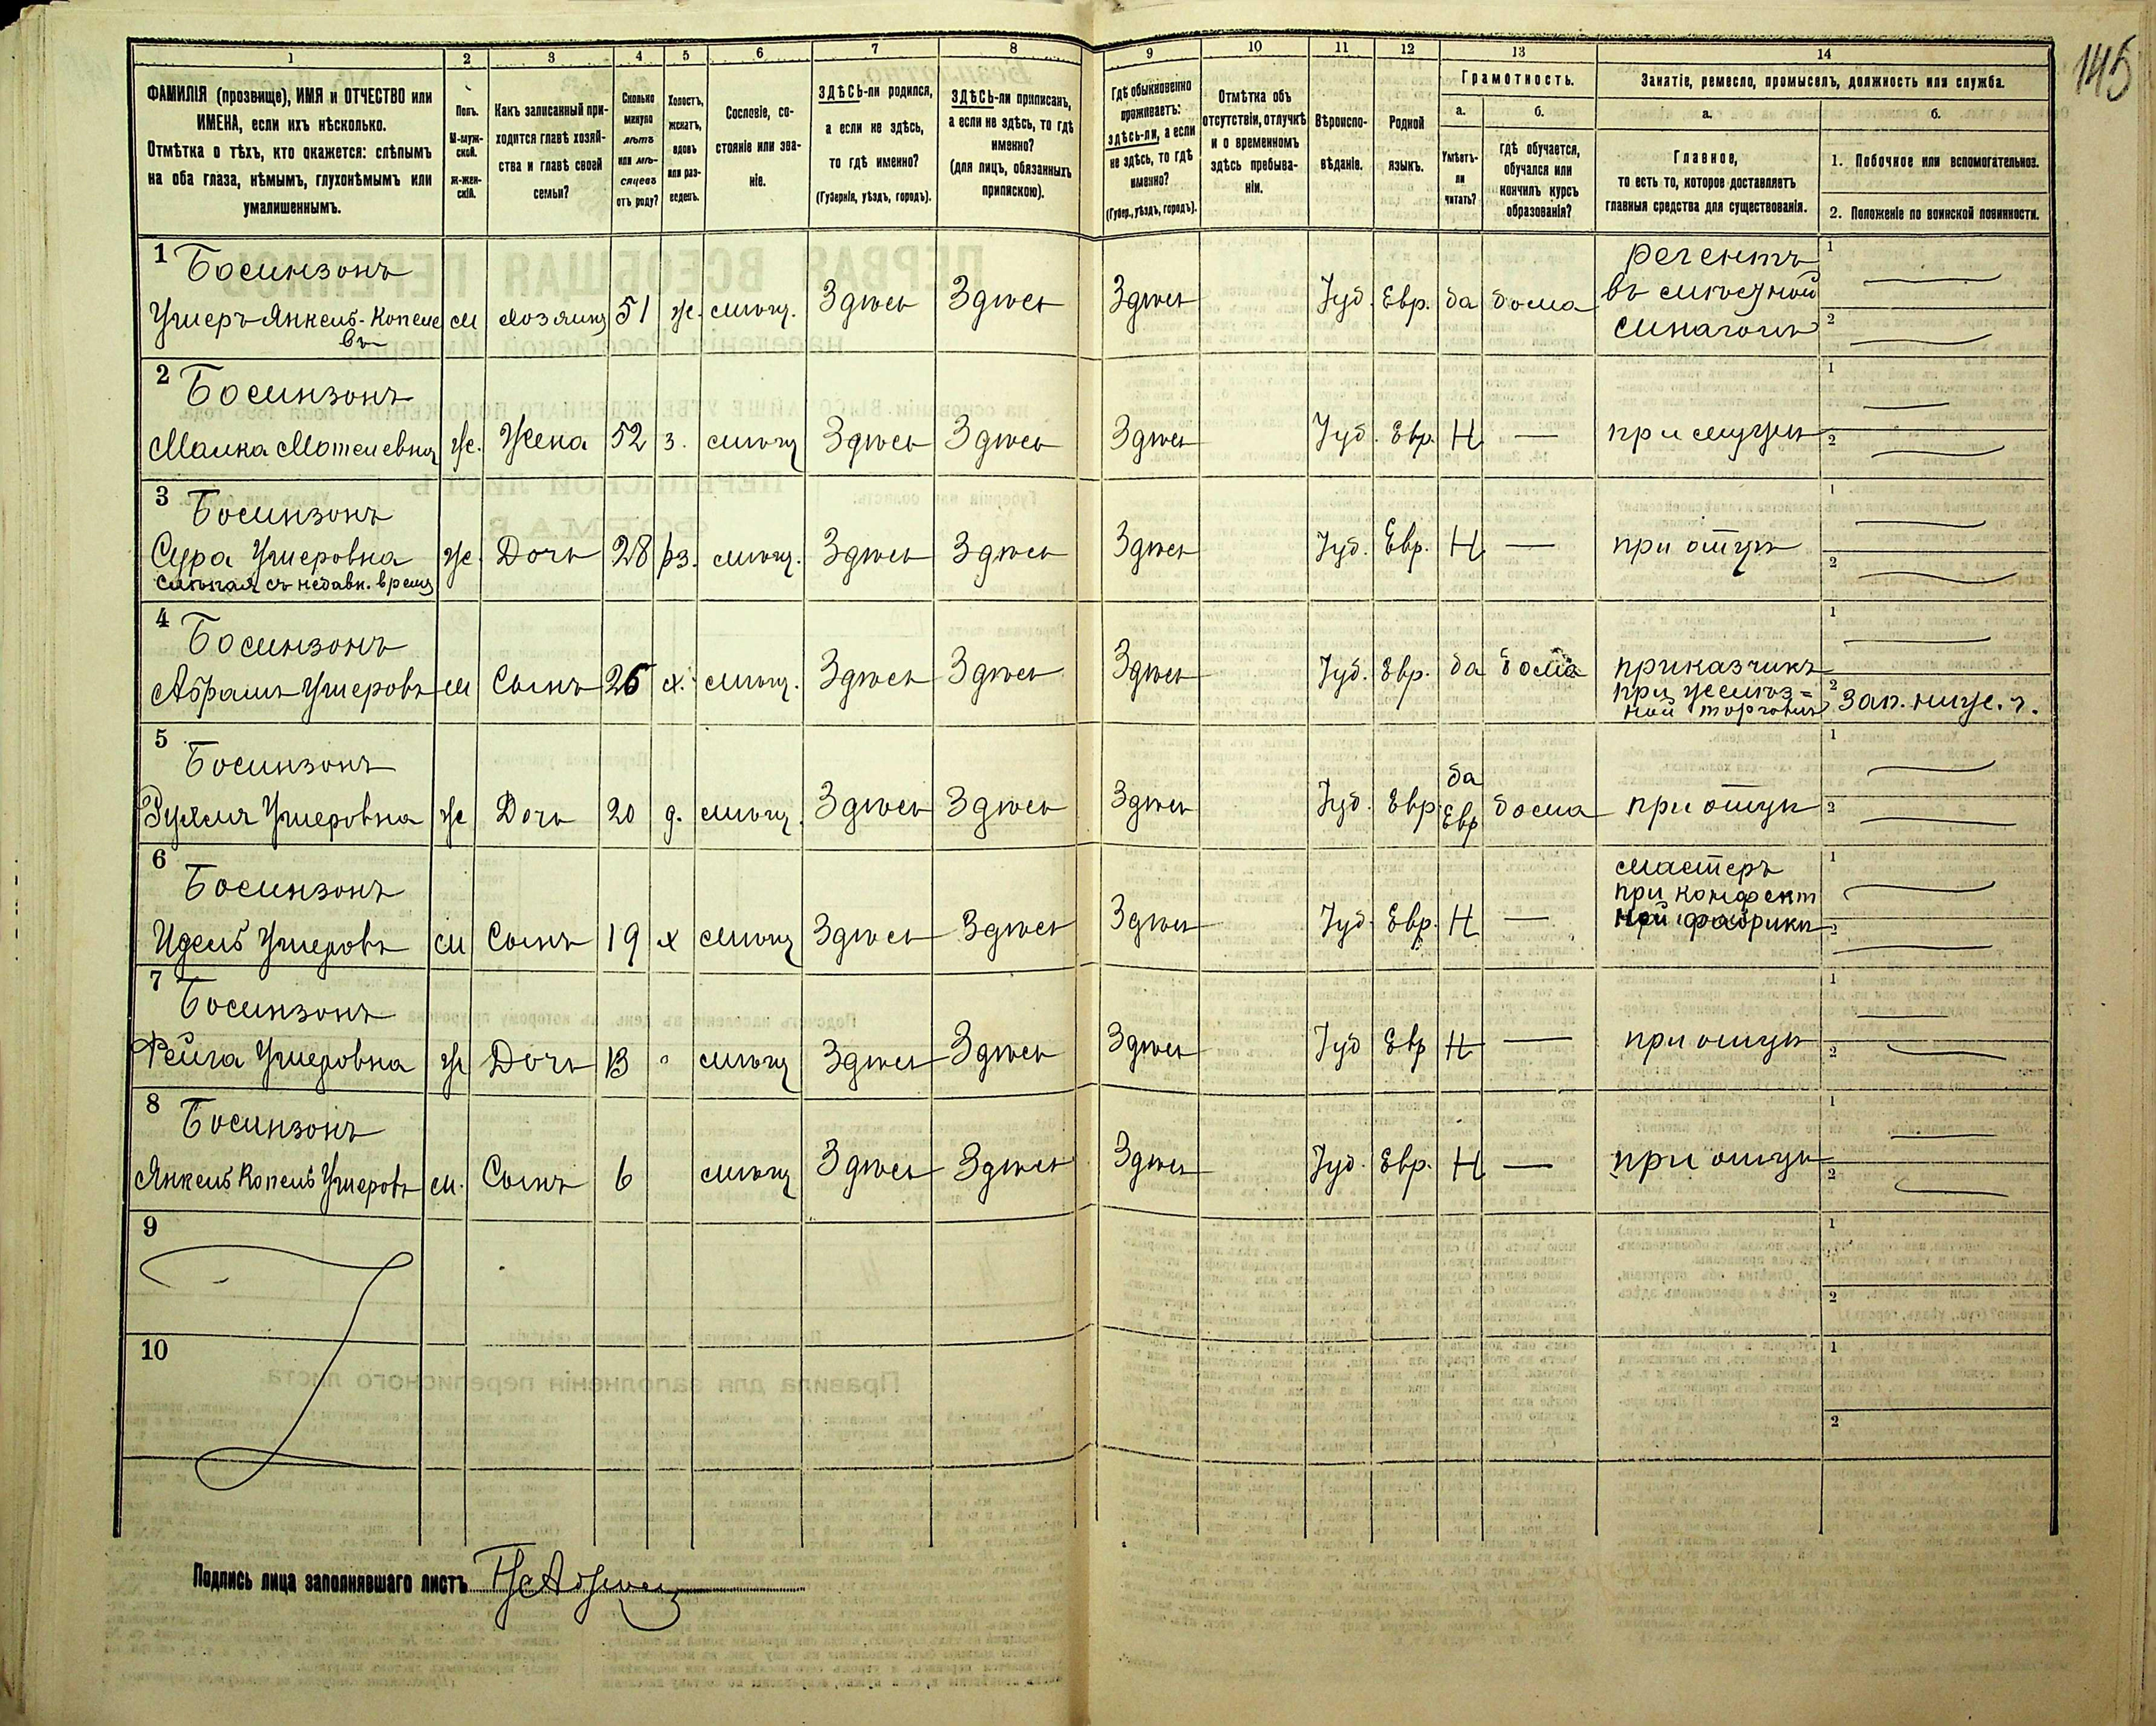 145
1 2 3 4 5 6 7 8 9 10 11 12 13 14
ФАМИЛІЯ (прозвище), ИМЯ и ОТЧЕСТВО или
ИМЕНА, если ихъ нѣсколько.
Отмѣтка о тѣхъ, кто окажется: слѣпымъ
на оба глаза, нѣмымъ, глухонѣмымъ или
умалишеннымъ.
Полъ.
М-муж-
ской.
Ж-жен-
скій.
Какъ записанный при-
ходится главѣ хозяй-
ства и главѣ своей
семьи?
Сколько
минуло
лѣтъ
или мѣ-
сяцевъ
отъ роду?
Холостъ,
женатъ,
вдовъ
или раз-
веденъ.
Сословіе, со-
стояніе или зва-
ніе.
ЗДѢСЬ-ли родился,
а если не здѣсь,
то гдѣ именно?
(Губернія, уѣздъ, городъ).
ЗДѢСЬ-ли приписанъ,
а если не здѣсь, то гдѣ
именно?
(для лицъ, обязанныхъ
припискою).
Гдѣ обыкновенно
проживаетъ:
здѣсь-ли, а если
не здѣсь, то гдѣ
именно?
(Губер., уѣздъ, городъ).
Отмѣтка объ
отсутствіи, отлучкѣ
и о временномъ
здѣсь пребыва-
ніи.
Вѣроиспо-
вѣданіе.
Родной
языкъ.
Грамотность.
а.
Умѣетъ-
ли
читать?
б.
гдѣ обучается,
обучался или
кончилъ курсъ
образованія?
Занятіе, ремесло, промыселъ, должность или служба.
а.
Главное,
то есть то, которое доставляетъ
главныя средства для существованія.
б.
1. Побочное или вспомогательное.
2. Положеніе по воинской повинности.
1 Босинзонъ
Ушеръ Янкель-Копеле
въ
м хозяинъ 51 ж. мѣщ. Здѣсь Здѣсь Здѣсь Іуд. Евр. да дома
регентъ
въ мѣстной
синагогѣ
1
2
2 Босинзонъ
Малка Мотелевна ж. Жена 52 з. мѣщ Здѣсь Здѣсь Здѣсь Іуд. Евр. Н — при мужѣ
1
2
3 Босинзонъ
Сура Ушеровна ж. Дочь 28 рз. мѣщ. Здѣсь Здѣсь Здѣсь Іуд. Евр. Н — при отцѣ
слѣпая съ недавн. врем
1
2
4 Босинзонъ
Абрамъ Ушеровъ м Сынъ 26 х. мѣщ. Здѣсь Здѣсь Здѣсь Іуд. Евр. да дома
приказчикъ
при желѣз=
ной торговлѣ
1
2 Зап. ниж. ч.
5 Босинзонъ
Ушеровна ж Дочь 20 д. мѣщ. Здѣсь Здѣсь Здѣсь Іуд. Евр. да
Евр
дома при отцѣ
1
2
6 Босинзонъ
Идель Ушеровъ м Сынъ 19 х мѣщ Здѣсь Здѣсь Здѣсь Іуд. Евр. Н —
мастеръ
при конфект
ной фабрики
1
2
7 Босинзонъ
Фейга Ушеровна ж Дочь 13 мѣщ Здѣсь Здѣсь Здѣсь Іуд Евр Н — при отцѣ
1
2
8 Босинзонъ
Янкель Копель Ушеровъ м. Сынъ 6 мѣщ Здѣсь Здѣсь Здѣсь Іуд. Евр. Н — при отцѣ
1
2
9
1
2
10
1
2
Подпись лица заполнявшаго листъ